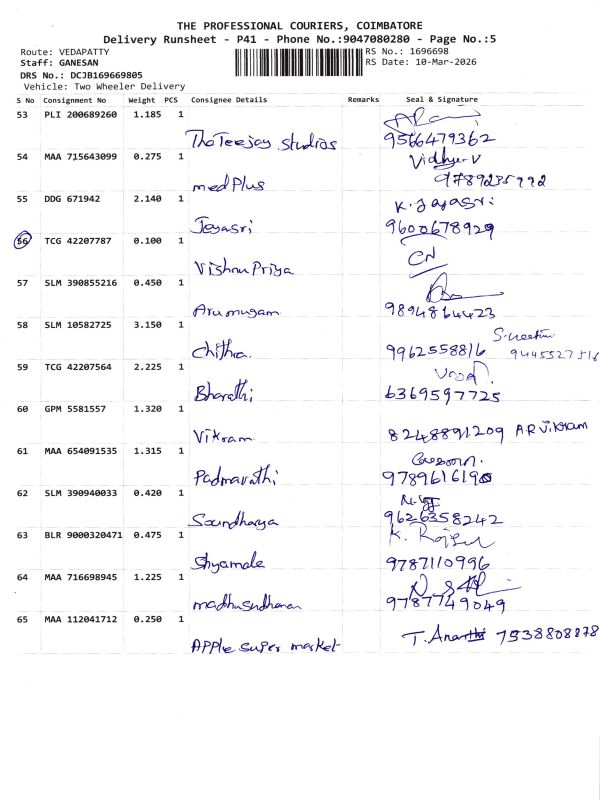 THE PROFESSIONAL COURIERS, COIMBATORE
Delivery Runsheet - P41 - Phone No.:9047080280 - Page No.:5
Route: VEDAPATTY RS No.: 1696698
Staff: GANESAN RS Date: 10-Mar-2026
DRS No.: DCJB169669805
Vehicle: Two Wheeler Delivery
S No Consignment No Weight PCS Consignee Details Remarks Seal & Signature
53 PLI 200689260 1.185 1
TheTeejay Studios 9566479362
54 MAA 715643099 0.275 1 Vidhya V
medPlus 9789235992
55 DDG 671942 2.140 1 K. Jayasri
Jeyasri 9600678929
56 TCG 42207787 0.100 1 CN
Vishnu Priya
57 SLM 390855216 0.450 1
Arumugam 9894864423
58 SLM 10582725 3.150 1
Chithra. 9962558816
59 TCG 42207564 2.225 1
Bharathi 6369597725
60 GPM 5581557 1.320 1
Vikram 8248891209 AR Vikram
61 MAA 654091535 1.315 1
Padmavathi 9789616190
62 SLM 390940033 0.420 1
Soundharya 9626358242
63 BLR 9000320471 0.475 1 K.
Shyamala 9787110996
64 MAA 716698945 1.225 1
madhusudhanan 9787749049
65 MAA 112041712 0.250 1
APPle super market T. Ananthi 7538808878